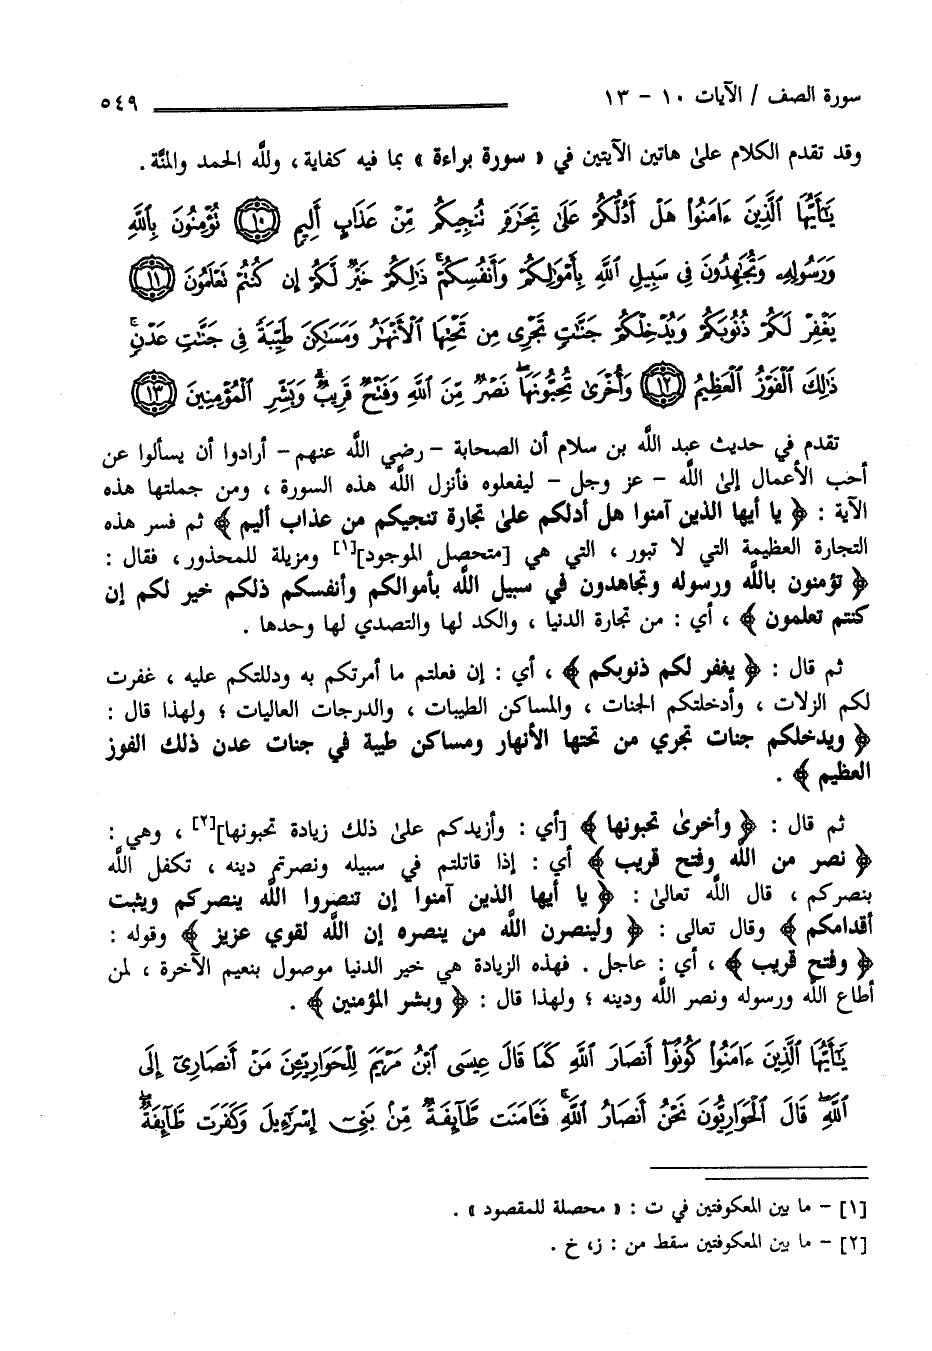 سورة الصف / الآيات ١٠ - ١٣ ٥٤٩
وقد تقدم الكلام علىٰ هاتين الآيتين في « سورة براءة » بما فيه كفاية ، وللَّه الحمد والمنَّة .
يَـٰٓأَيُّهَا ٱلَّذِينَ ءَامَنُوا۟ هَلْ أَدُلُّكُمْ عَلَىٰ تِجَـٰرَةٍ تُنجِيكُم مِّنْ عَذَابٍ أَلِيمٍ ﴿١٠﴾ تُؤْمِنُونَ بِٱللَّهِ
وَرَسُولِهِۦ وَتُجَـٰهِدُونَ فِى سَبِيلِ ٱللَّهِ بِأَمْوَٰلِكُمْ وَأَنفُسِكُمْ ۚ ذَٰلِكُمْ خَيْرٌ لَّكُمْ إِن كُنتُمْ تَعْلَمُونَ ﴿١١﴾
يَغْفِرْ لَكُمْ ذُنُوبَكُمْ وَيُدْخِلْكُمْ جَنَّـٰتٍ تَجْرِى مِن تَحْتِهَا ٱلْأَنْهَـٰرُ وَمَسَـٰكِنَ طَيِّبَةً فِى جَنَّـٰتِ عَدْنٍ ۚ
ذَٰلِكَ ٱلْفَوْزُ ٱلْعَظِيمُ ﴿١٢﴾ وَأُخْرَىٰ تُحِبُّونَهَا ۖ نَصْرٌ مِّنَ ٱللَّهِ وَفَتْحٌ قَرِيبٌ ۗ وَبَشِّرِ ٱلْمُؤْمِنِينَ ﴿١٣﴾
تقدم في حديث عبد اللَّه بن سلام أن الصحابة - رضي اللَّه عنهم - أرادوا أن يسألوا عن
أحب الأعمال إلىٰ اللَّه - عز وجل - ليفعلوه فأنزل اللَّه هذه السورة ، ومن جملتها هذه
الآية : ﴿ يا أيها الذين آمنوا هل أدلكم علىٰ تجارة تنجيكم من عذاب أليم ﴾ ثم فسر هذه
التجارة العظيمة التي لا تبور ، التي هي [متحصل الموجود][١] ومزيلة للمحذور ، فقال :
﴿ تؤمنون باللَّه ورسوله وتجاهدون في سبيل اللَّه بأموالكم وأنفسكم ذلكم خير لكم إن
كنتم تعلمون ﴾ ، أي : من تجارة الدنيا ، والكد لها والتصدي لها وحدها .
ثم قال : ﴿ يغفر لكم ذنوبكم ﴾ ، أي : إن فعلتم ما أمرتكم به ودللتكم عليه ، غفرت
لكم الزلات ، وأدخلتكم الجنات ، والمساكن الطيبات ، والدرجات العاليات ؛ ولهذا قال :
﴿ ويدخلكم جنات تجري من تحتها الأنهار ومساكن طيبة في جنات عدن ذلك الفوز
العظيم ﴾ .
ثم قال : ﴿ وأخرىٰ تحبونها ﴾ [أي : وأزيدكم علىٰ ذلك زيادة تحبونها][٢] ، وهي :
﴿ نصر من اللَّه وفتح قريب ﴾ أي : إذا قاتلتم في سبيله ونصرتم دينه ، تكفل اللَّه
بنصركم ، قال اللَّه تعالىٰ : ﴿ يا أيها الذين آمنوا إن تنصروا اللَّه ينصركم ويثبت
أقدامكم ﴾ وقال تعالى : ﴿ ولينصرن اللَّه من ينصره إن اللَّه لقوي عزيز ﴾ وقوله :
﴿ وفتح قريب ﴾ ، أي : عاجل . فهذه الزيادة هي خير الدنيا موصول بنعيم الآخرة ، لمن
أطاع اللَّه ورسوله ونصر اللَّه ودينه ؛ ولهذا قال : ﴿ وبشر المؤمنين ﴾ .
يَـٰٓأَيُّهَا ٱلَّذِينَ ءَامَنُوا۟ كُونُوٓا۟ أَنصَارَ ٱللَّهِ كَمَا قَالَ عِيسَى ٱبْنُ مَرْيَمَ لِلْحَوَارِيِّـۧنَ مَنْ أَنصَارِىٓ إِلَى
ٱللَّهِ ۖ قَالَ ٱلْحَوَارِيُّونَ نَحْنُ أَنصَارُ ٱللَّهِ ۖ فَـَٔامَنَت طَّآئِفَةٌ مِّنۢ بَنِىٓ إِسْرَٰٓءِيلَ وَكَفَرَت طَّآئِفَةٌ ۖ
[١] - ما بين المعكوفتين في ت : « محصلة للمقصود » .
[٢] - ما بين المعكوفتين سقط من : ز، خ .